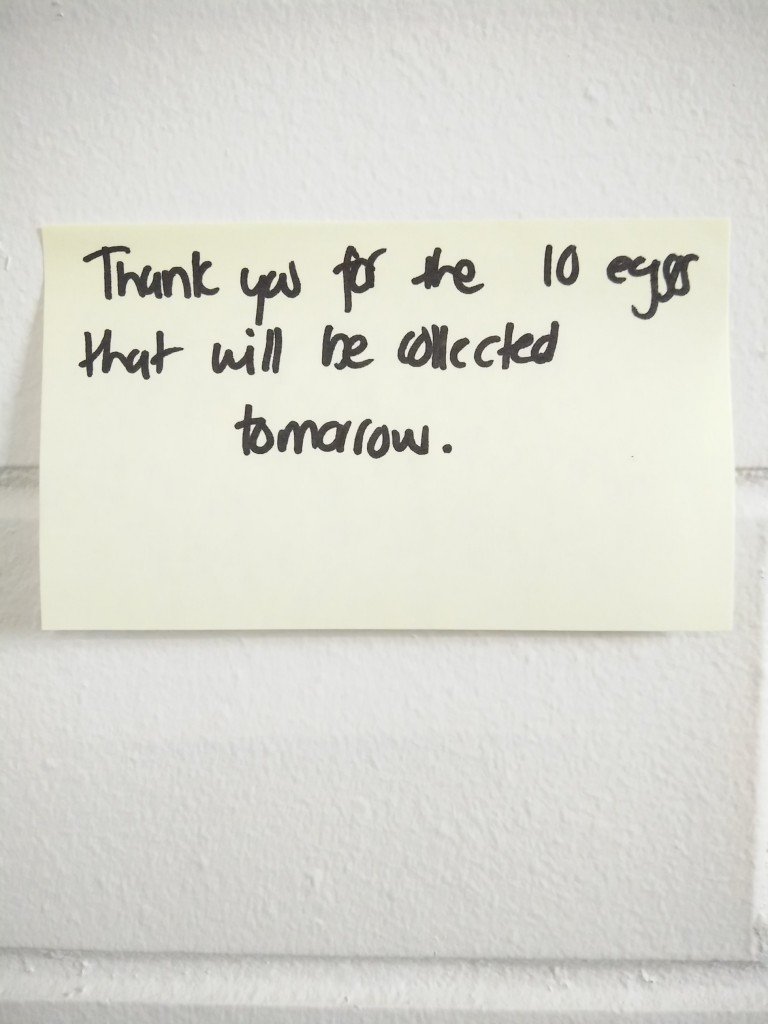 Thank you for the 10 eggs
that will be collected
tomarow.